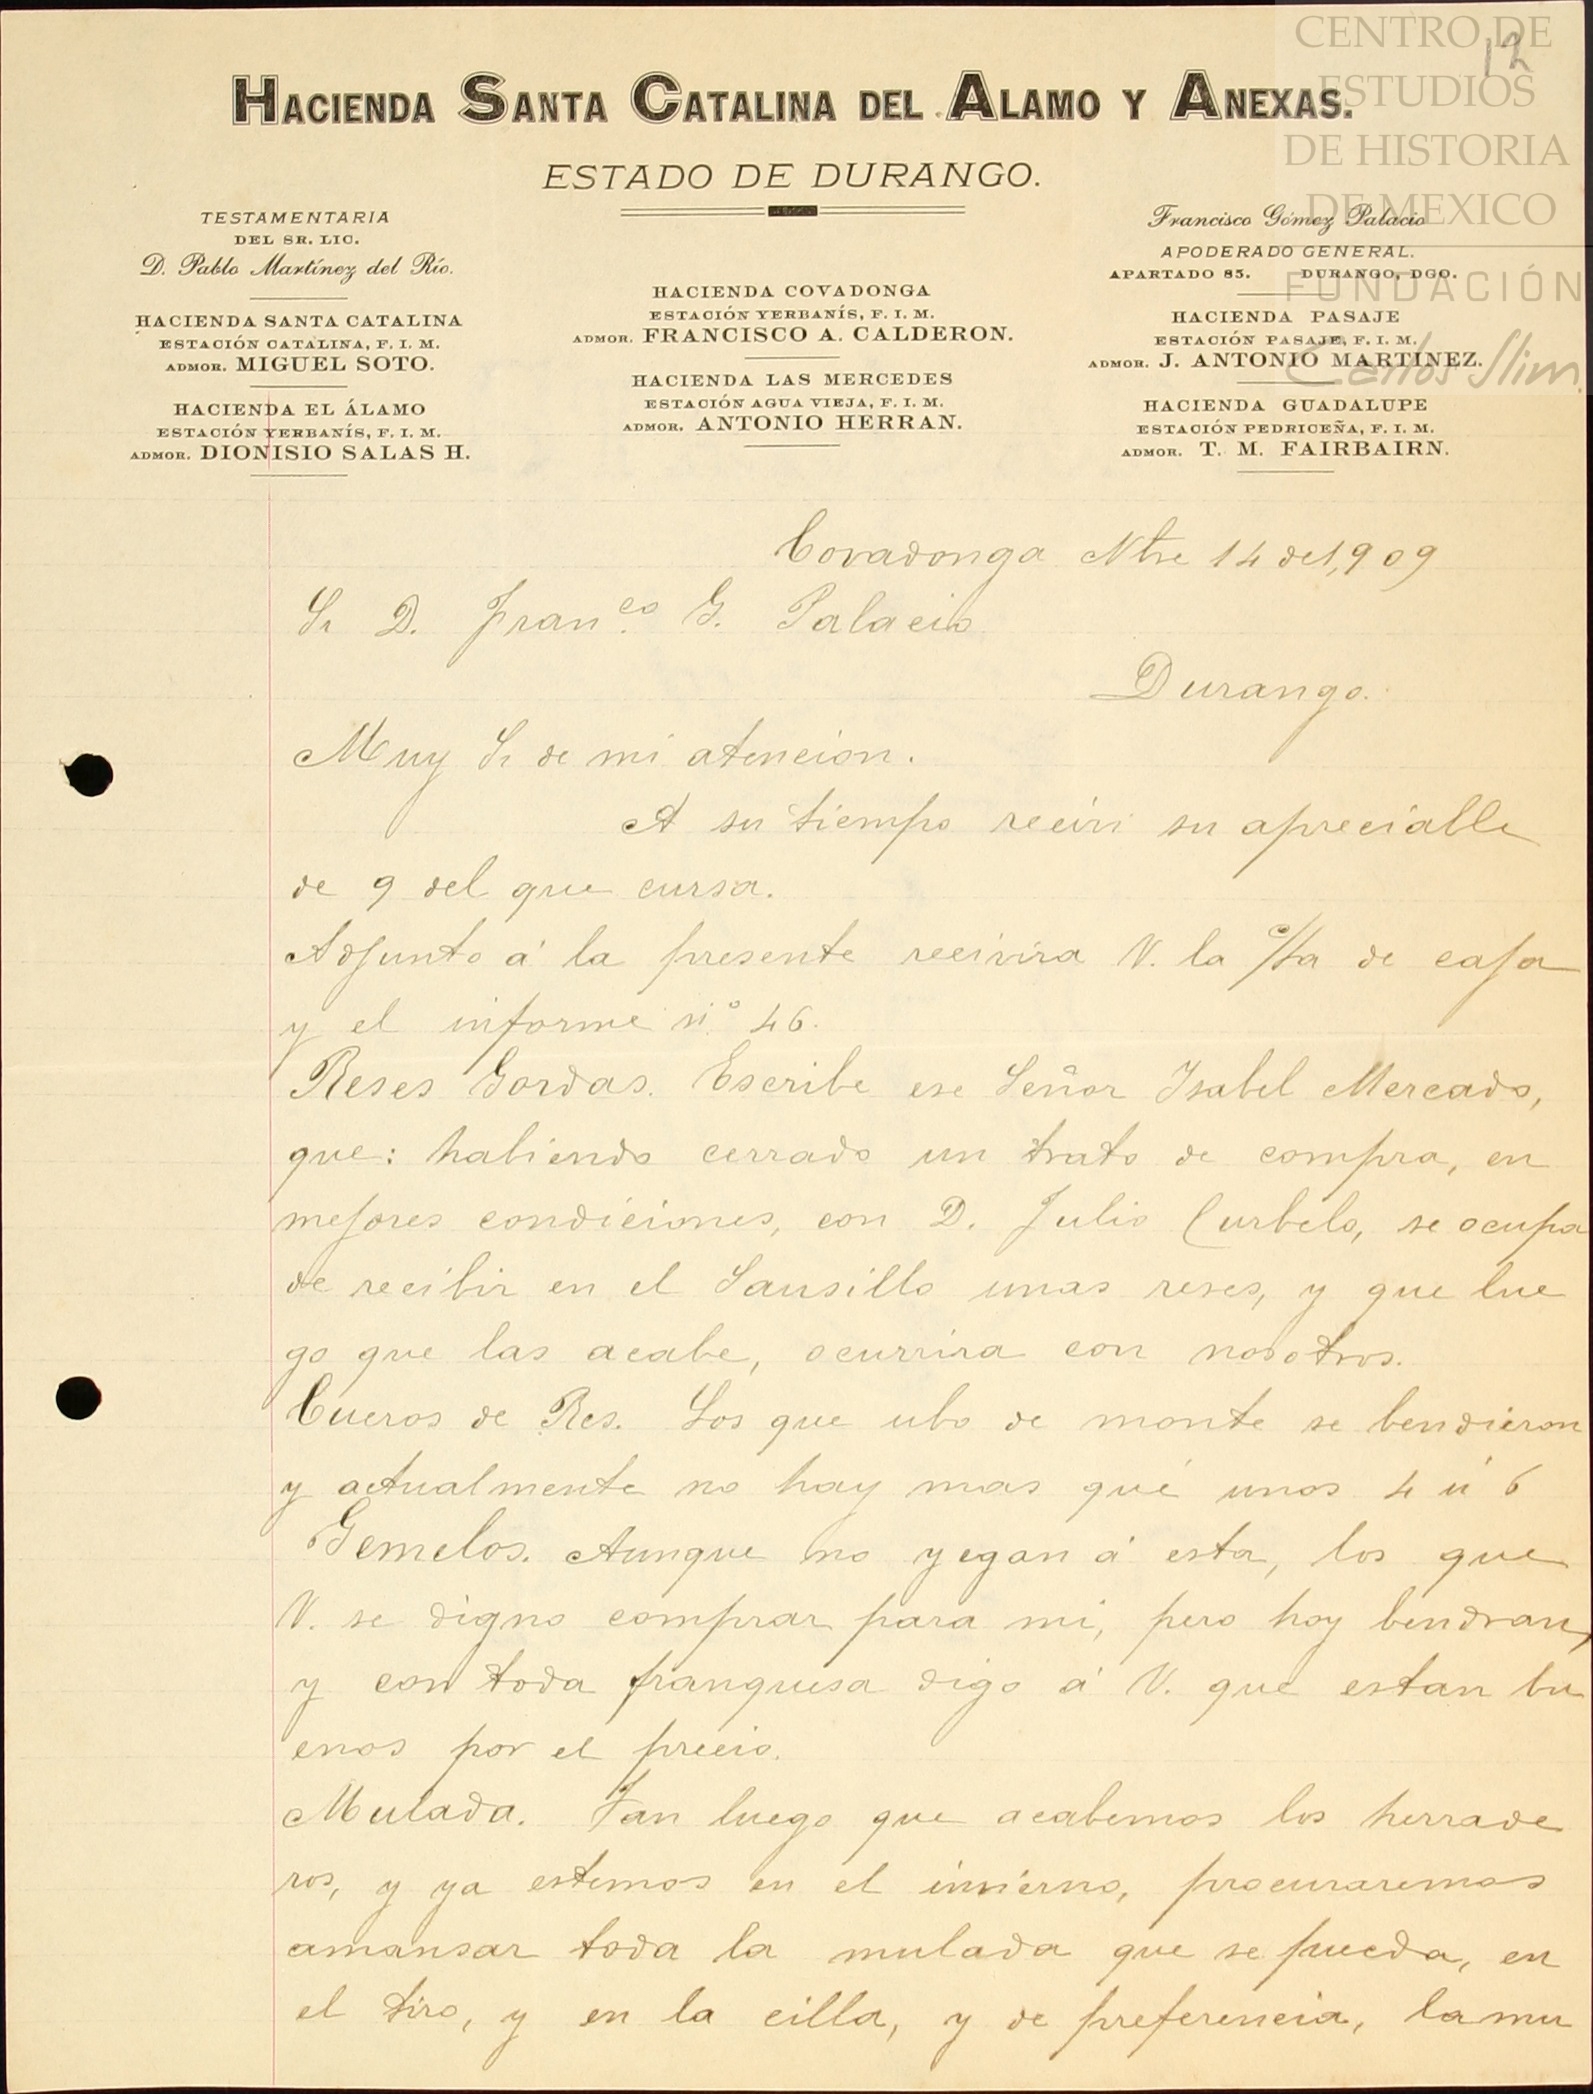 CENTRO DE
ESTUDIOS
DE HISTORIA
DE MEXICO
FUNDACIÓN
Carlos Slim
12
HACIENDA SANTA CATALINA DEL ALAMO Y ANEXAS.
ESTADO DE DURANGO.
TESTAMENTARIA
DEL SR. LIC.
D. Pablo Martínez del Río.
HACIENDA SANTA CATALINA
ESTACIÓN CATALINA, F. I. M.
ADMOR. MIGUEL SOTO.
HACIENDA EL ÁLAMO
ESTACIÓN YERBANÍS, F. I. M.
ADMOR. DIONISIO SALAS H.
HACIENDA COVADONGA
ESTACIÓN YERBANÍS, F. I. M.
ADMOR. FRANCISCO A. CALDERON.
HACIENDA LAS MERCEDES
ESTACIÓN AGUA VIEJA, F. I. M.
ADMOR. ANTONIO HERRAN.
Francisco Gómez Palacio
APODERADO GENERAL.
APARTADO 85. DURANGO, DGO.
HACIENDA PASAJE
ESTACIÓN PASAJE, F. I. M.
ADMOR. J. ANTONIO MARTINEZ.
HACIENDA GUADALUPE
ESTACIÓN PEDRICEÑA, F. I. M.
ADMOR. T. M. FAIRBAIRN.
Covadonga Nbre 14 de 1,909
Sr D. Fran.co G. Palacio
Durango.
Muy Sr de mi atencion.
A su tiempo reciví su apreciable
de 9 del que cursa.
Adjunto á la presente recivira V. la c/ta de caja
y el informe n.° 46.
Reses Gordas. Escribe ese Señor Isabel Mercado,
que: habiendo cerrado un trato de compra, en
mejores condiciones, con D. Julio Curbelo, se ocupa
de recibir en el Sausillo unas reses, y que lue
go que las acabe, ocurrira con nosotros.
Cueros de Res. Los que ubo de monte se bendieron
y actualmente no hay mas qué unos 4 ú 6
Gemelos. Aunque no yegan á esta, los que
V. se digno comprar para mi, pero hoy bendran,
y con toda franquesa digo á V. que estan bu
enos por el precio.
Mulada. Tan luego que acabemos los herrade
ros, y ya estemos en el invierno, procuraremos
amansar toda la mulada que se pueda, en
el tiro, y en la cilla, y de preferencia, la mu